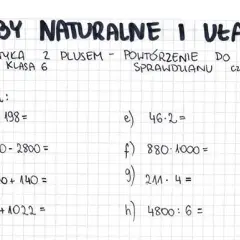 BY NATURALNE I UŁA
TYKA Z PLUSEM - POWTÓRZENIE DO
KLASA 6 SPRAWDUANU CZ
:
198= e) 46·2=
0-2800= f) 880·1000=
0+140= g) 211·4=
+1022= h) 4800:6=